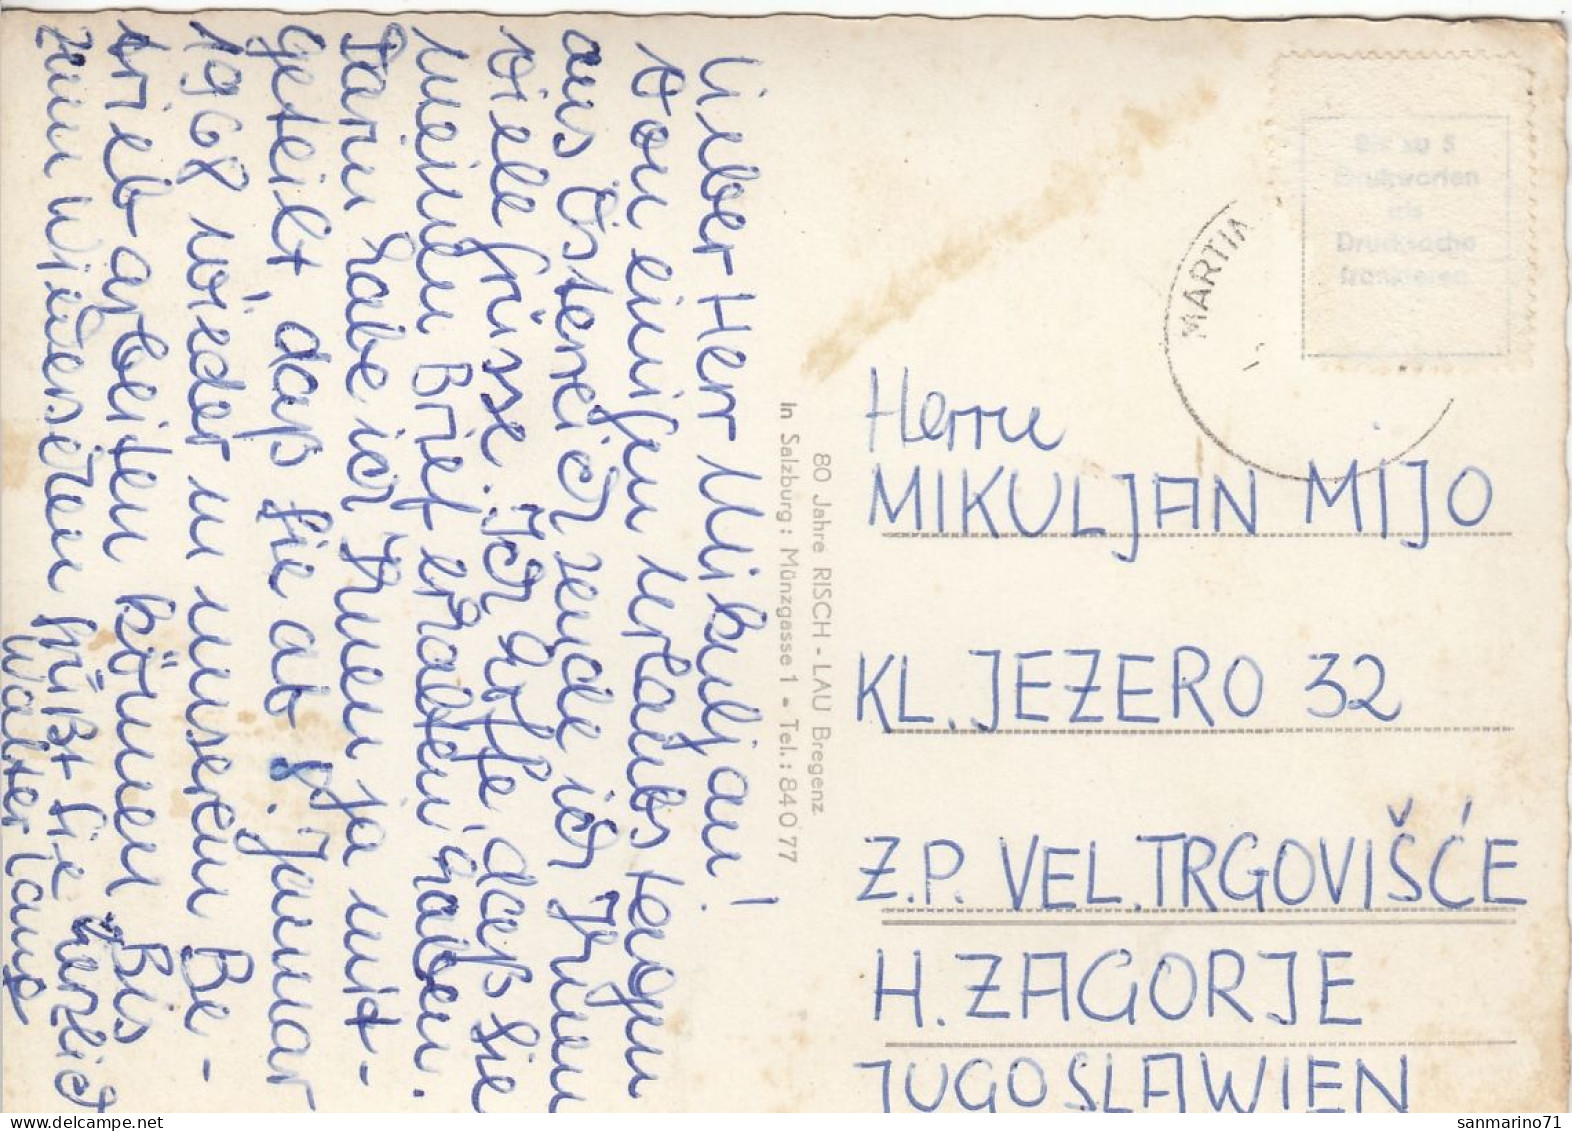 Lieber Herr Mikuljan!
Von einigen Urlaubstagen
aus Österreich sende ich Ihnen
viele Grüsse. Ich hoffe, daß Sie
meinen Brief erhalten haben.
Darin habe ich Ihnen ja mit-
geteilt, daß Sie ab 8. Januar
1968 wieder in unserem Be-
trieb arbeiten können. Bis
zum Wiedersehen grüßt Sie herzlich
Walter
80 Jahre RISCH-LAU Bregenz
In Salzburg: Münzgasse 1 - Tel.: 84077
Bis zu 5
als
Drucksache
MARTIN
Herrn
MIKULJAN MIJO
KL. JEZERO 32
Z.P. VEL.TRGOVIŠĆE
H. ZAGORJE
JUGOSLAWIEN
sanmarino71